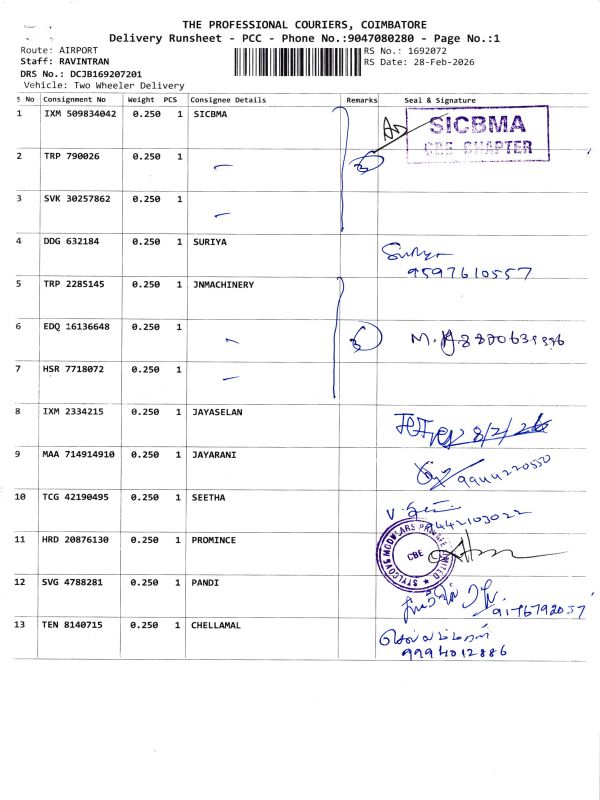 THE PROFESSIONAL COURIERS, COIMBATORE
Delivery Runsheet - PCC - Phone No.:9047080280 - Page No.:1
Route: AIRPORT
RS No.: 1692072
Staff: RAVINTRAN
RS Date: 28-Feb-2026
DRS No.: DCJB169207201
Vehicle: Two Wheeler Delivery
S No Consignment No Weight PCS Consignee Details Remarks Seal & Signature
1 IXM 509834042 0.250 1 SICBMA
SICBMA
CBE CHAPTER
2 TRP 790026 0.250 1
3 SVK 30257862 0.250 1
4 DDG 632184 0.250 1 SURIYA
Suriya
9597610557
5 TRP 2285145 0.250 1 JNMACHINERY
6 EDQ 16136648 0.250 1 3
7 HSR 7718072 0.250 1
8 IXM 2334215 0.250 1 JAYASELAN
28/2/26
9 MAA 714914910 0.250 1 JAYARANI
9944220550
10 TCG 42190495 0.250 1 SEETHA
9442103022
11 HRD 20876130 0.250 1 PROMINCE
STYLCONE MODULARS PRIVATE LIMITED
CBE
12 SVG 4788281 0.250 1 PANDI
9176792057
13 TEN 8140715 0.250 1 CHELLAMAL
செல்லம்மாள்
9994012886